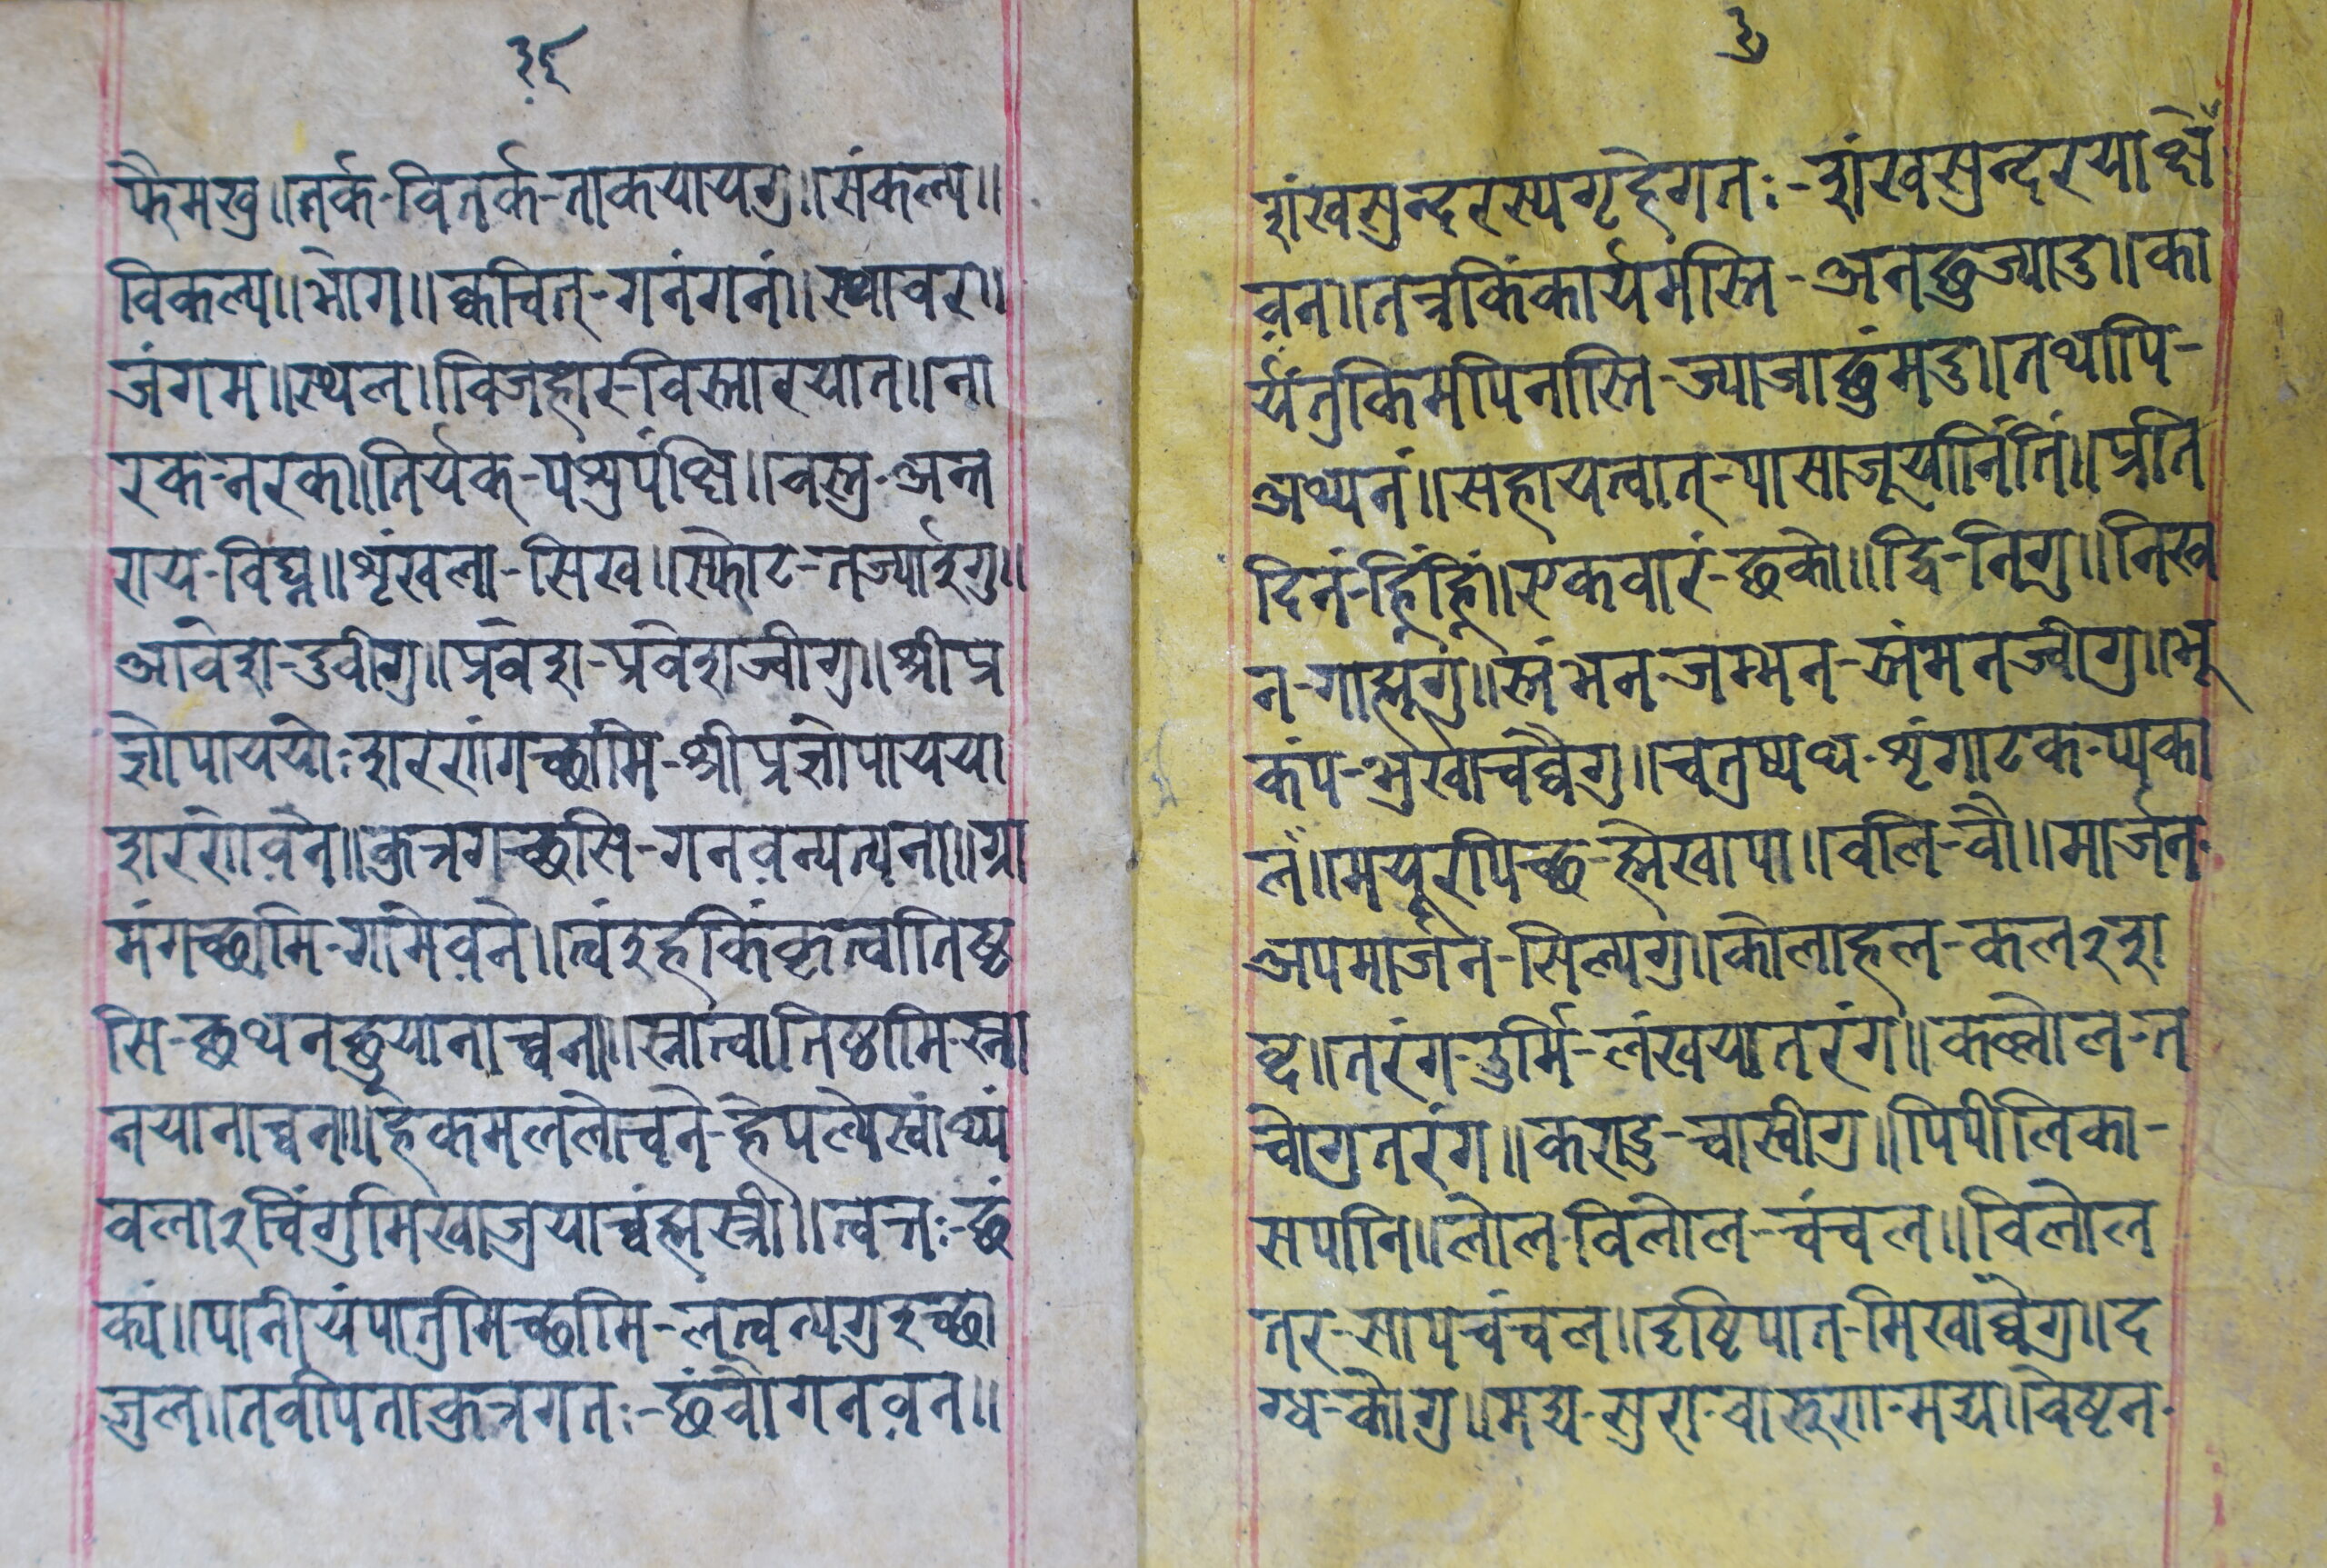 ३६
फैमखु॥तर्क-वितर्क-ताकयायगु॥संकल्प॥
विकल्प॥भोग॥क्वचित्-गनंगनं॥स्थावर॥
जंगम॥स्थल॥विजहार-विस्तारयात॥ना
रक-नरक॥तिर्यक्-पशुपंक्षि॥वस्तु-अन्त
राय-विघ्न॥शृंखला-सिख॥स्फोट-तज्यार्इगु॥
आवेश-दुवीगु॥प्रवेश-प्रवेशज्वीगु॥श्रीप्र
ज्ञोपाययोः शरणंगच्छामि-श्रीप्रज्ञोपायया
शरणेवने॥कुत्रगच्छसि-गनवनेत्यना॥ग्रा
मंगच्छामि-गामेवने॥त्वंइहकिंकृत्वातिष्ठ
सि-छथनछुयानाच्वना॥स्नात्वातिष्ठामि-स्ना
नयानाच्वना॥हेकमललोचने-हेपलेखांथ्यं
वलारचिंगुमिखाजुयाच्वंह्मस्त्री॥त्वत्तः-छं
के॥पानीयंपातुमिच्छामि-लत्वनेगुइच्छा
जुल॥तवपिताकुत्रगतः-छंबौगनवन॥
शंखसुन्दरस्यगृहेगतः-शंखसुन्दरयाछें
वन॥तत्रकिंकार्यमस्ति-अनछुज्यादु॥का
र्यंतुकिमपिनास्ति-ज्याजाछुंमदु॥तथापि-
अथ्यनं॥सहायत्वात्-पासाजूयानिंतिं॥प्रति
दिनं-हिंहिं॥एकवारं-छको॥द्वि-निगु॥निख
न-गाह्मुगु॥स्तंभन-जम्भन-स्तंमनज्वीगु॥भू
कंप-भुखाचब्वैगु॥चतुष्पथ-शृंगाटक-प्यका
लं॥मयूरपिच्छ-ह्मेखापा॥बलि-बौ॥मार्जन-
अपमार्जन-सिलेगु॥कोलाहल-कलरश
ब्द॥तरंग-उर्मि-लंखयातरंग॥कल्लोल-त
च्वोगुतरंग॥कराडु-चासुवीगु॥पिपीलिका-
सपनि॥लोल-विलोल-चंचल॥विलोल
तर-सापचंचल॥दृष्टिपात-मिखांब्वैगु॥द
ग्ध-कोगु॥मद्य-सुरा-वारुणी-मद्य॥वेष्टन-